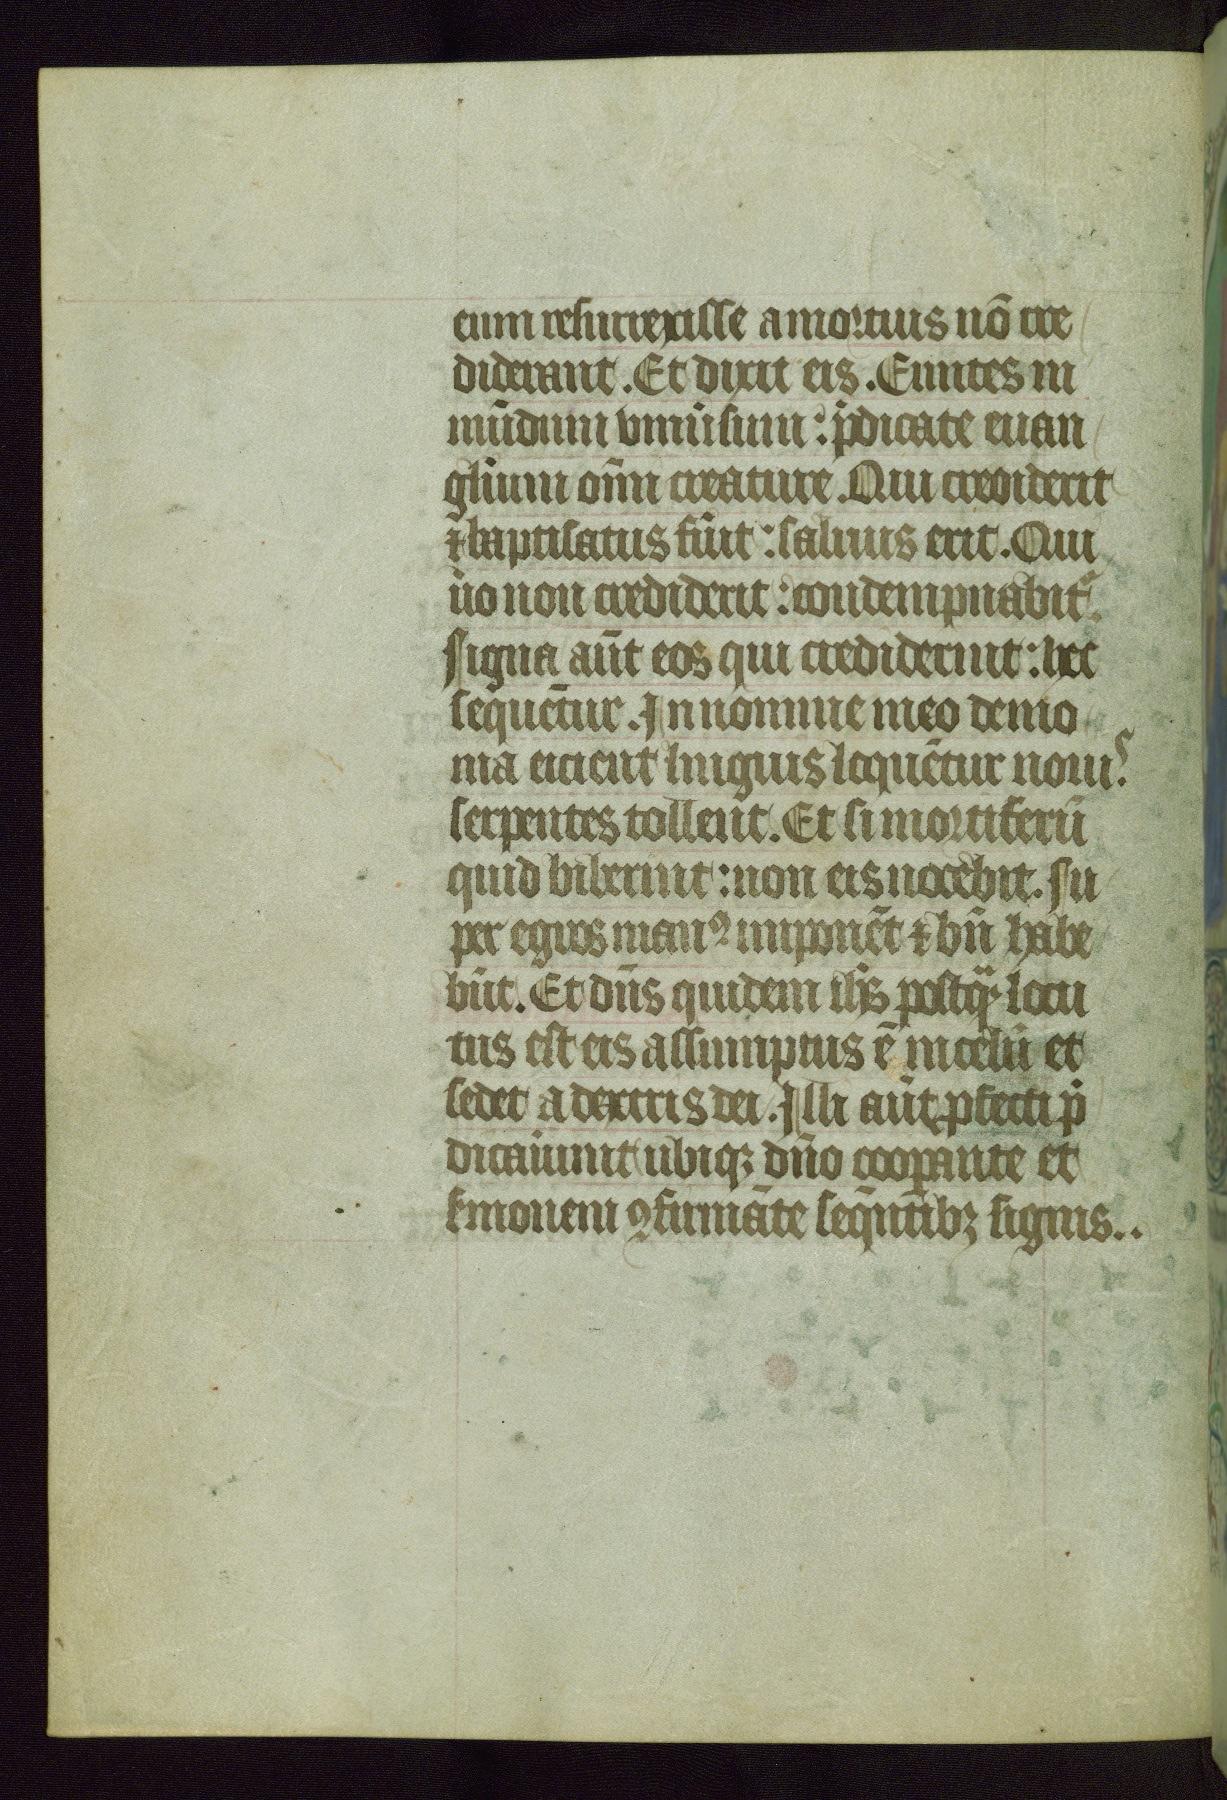 eum resurrexisse a mortuis nō cre
diderant. Et dixit eis. Euntes in
mūdum vniūsum: p̄dicate euan
glium om̄i creature. Qui crediderit
⁊ baptisatus fūit: saluus erit. Qui
ūo non crediderit: condempnabit᷑.
Signa aūt eos qui crediderint: hec
sequētur. In nomine meo demo
nia eicient linguis loquētur nouis:
serpentes tollent. Et si mortiferū
quid biberint: non eis nocebit. Su
per egros manꝰ imponēt ⁊ bn̄ habe
būt. Et dn̄s quidem ih̄s postqͣ locu
tus est eis assumptus ē in celū et
sedet a dextris dei. Illi aūt ꝓfecti p̄
dicauīunt ubiqꝫ dn̄o coopante et
s̄monem ꝯfirmāte seqn̄tibꝫ signis..